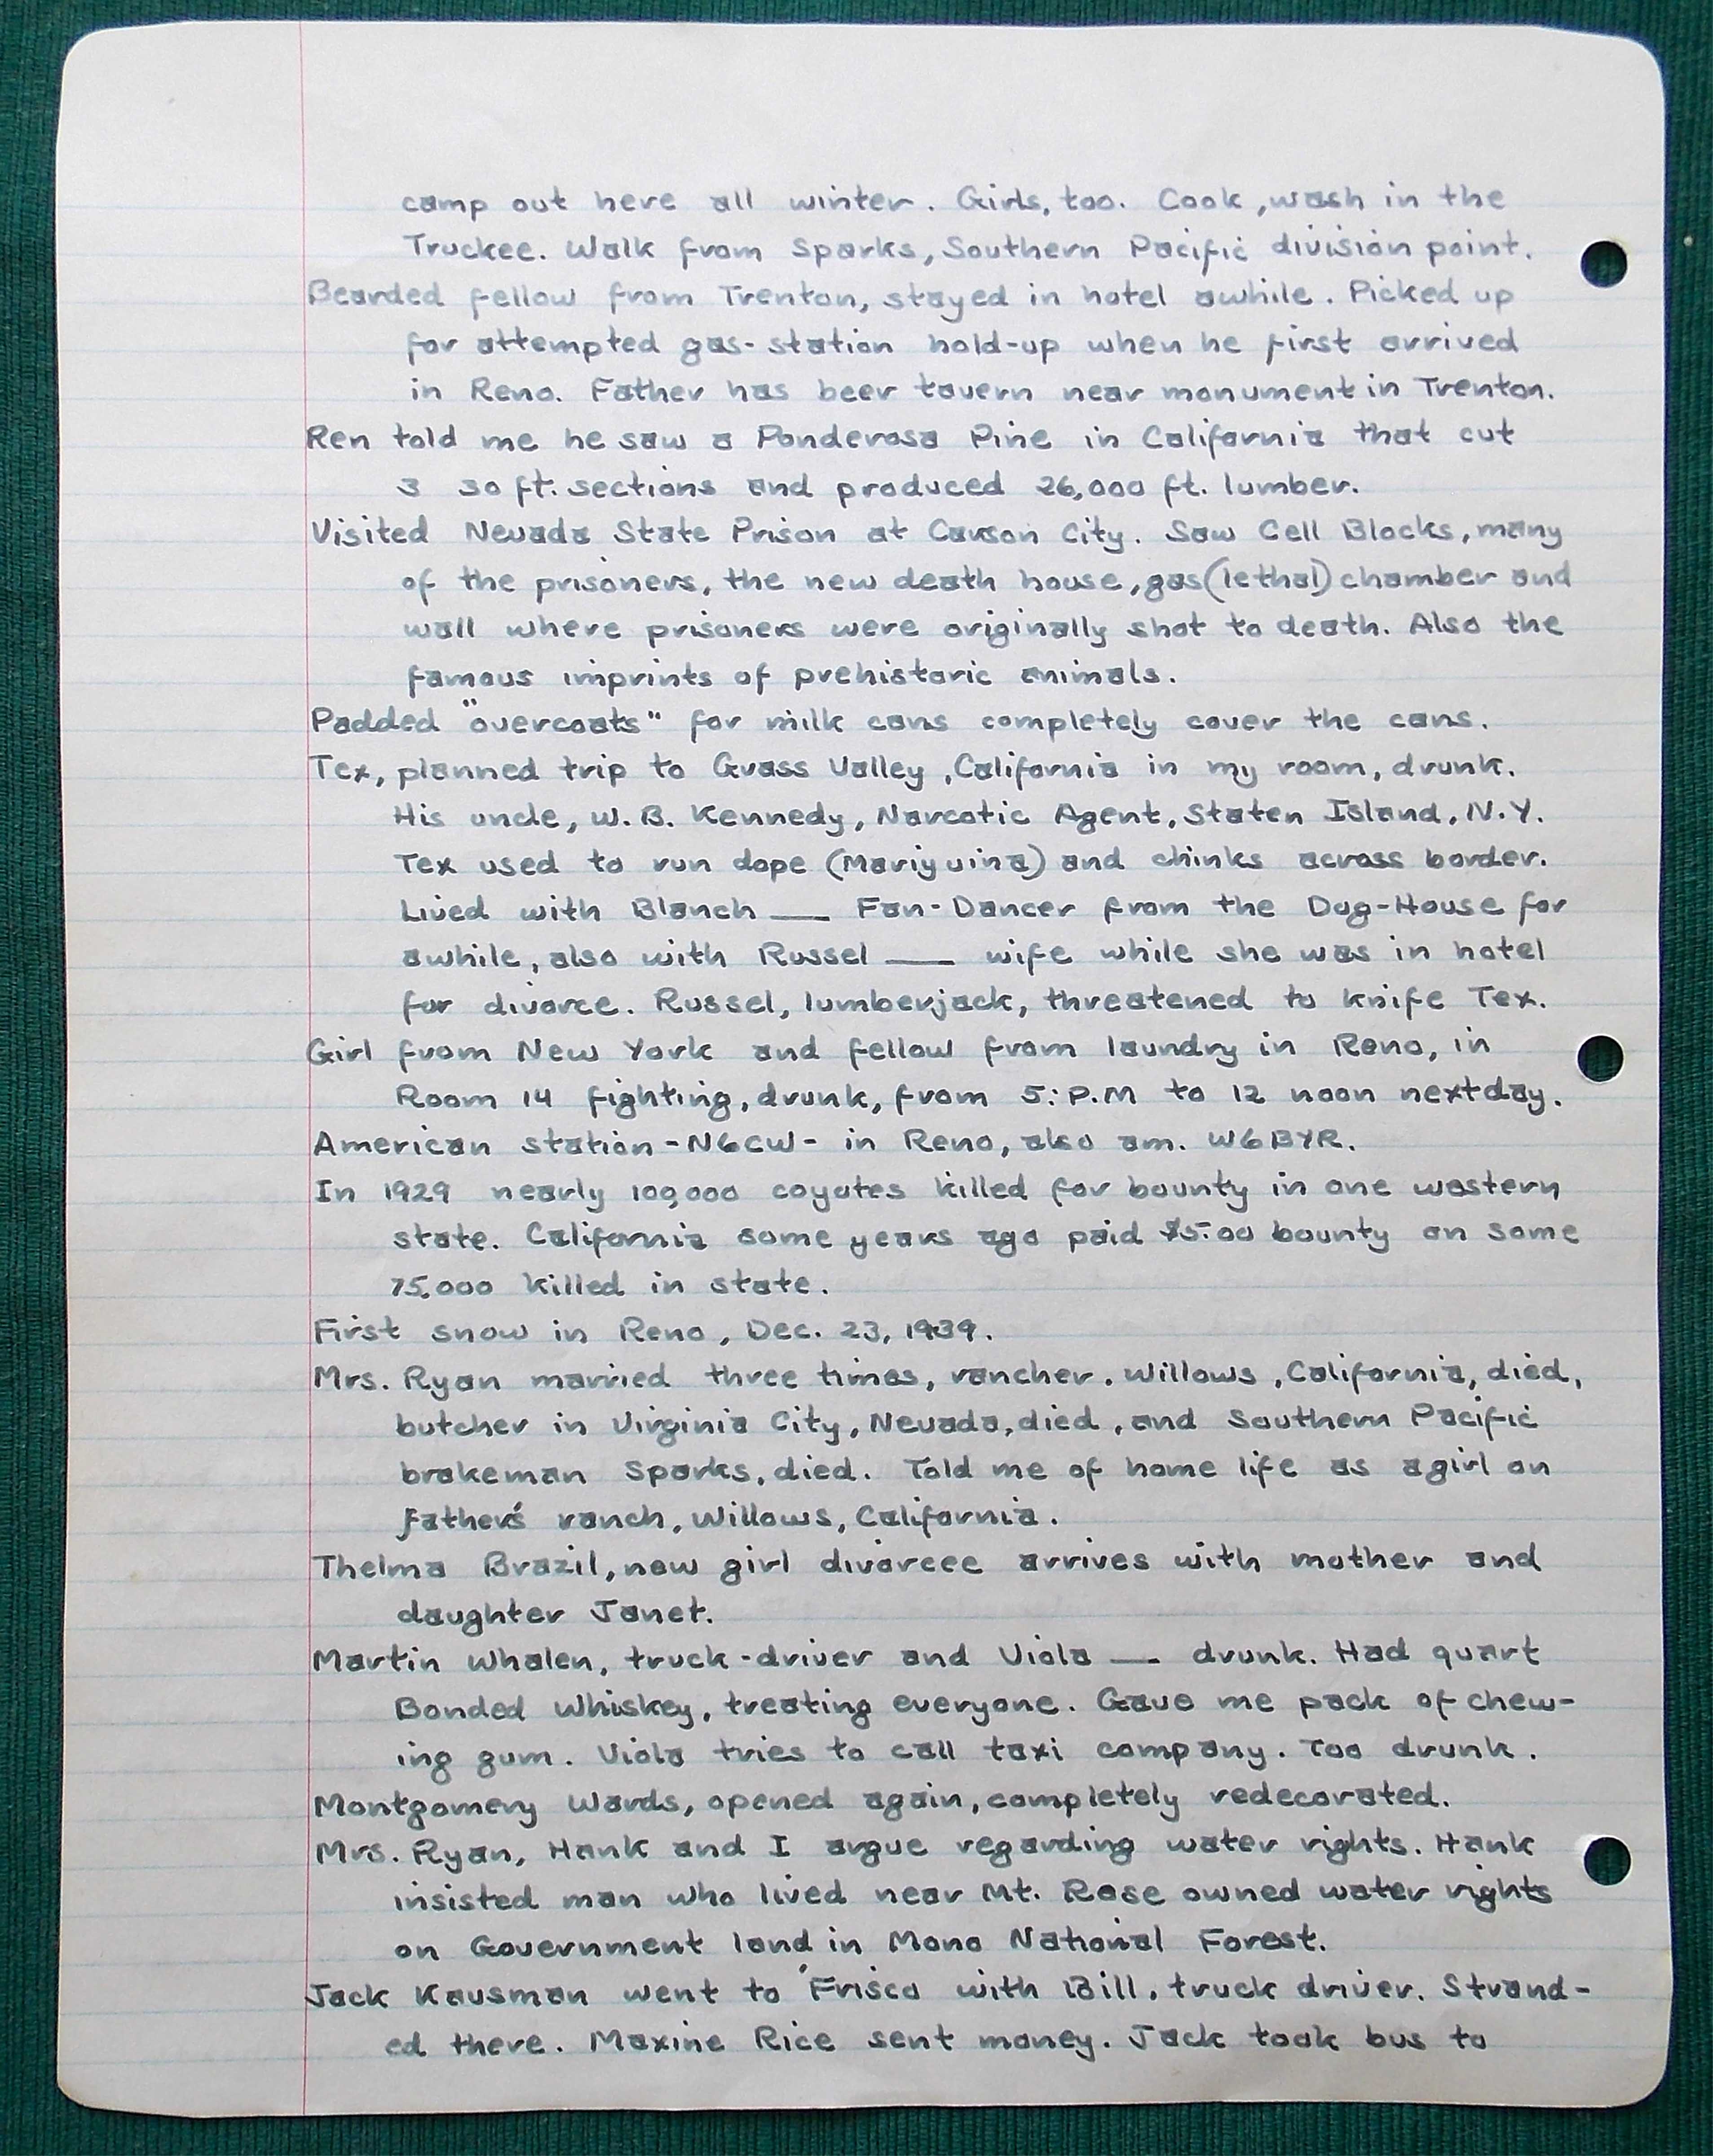 camp out here all winter. Girls, too. Cook, wash in the
Truckee. Walk from Sparks, Southern Pacific division point.
Bearded fellow from Trenton, stayed in hotel awhile. Picked up
for attempted gas-station hold-up when he first arrived
in Reno. Father has beer tavern near monument in Trenton.
Ren told me he saw a Ponderosa Pine in California that cut
3 30 ft. sections and produced 26,000 ft. lumber.
Visited Nevada State Prison at Carson City. Saw Cell Blocks, many
of the prisoners, the new death house, gas (lethal) chamber and
wall where prisoners were originally shot to death. Also the
famous imprints of prehistoric animals.
Padded "overcoats" for milk cans completely cover the cans.
Tex, planned trip to Grass Valley, California in my room, drunk.
His uncle, W.B. Kennedy, Narcotic Agent, Staten Island, N.Y.
Tex used to run dope (Mariyuina) and chinks across border.
Lived with Blanch ___ Fan-Dancer from the Dog-House for
awhile, also with Russel ___ wife while she was in hotel
for divorce. Russel, lumberjack, threatened to knife Tex.
Girl from New York and fellow from laundry in Reno, in
Room 14 fighting, drunk, from 5: P.M to 12 noon next day.
American station -N6CW- in Reno, also am. W6BYR.
In 1929 nearly 100,000 coyotes killed for bounty in one western
state. California some years ago paid $5.00 bounty on some
75,000 killed in state.
First snow in Reno, Dec. 23, 1939.
Mrs. Ryan married three times, rancher. Willows, California, died,
butcher in Virginia City, Nevada, died, and Southern Pacific
brakeman Sparks, died. Told me of home life as a girl on
father's ranch, Willows, California.
Thelma Brazil, new girl divorcee arrives with mother and
daughter Janet.
Martin Whalen, truck-driver and Viola ___ drunk. Had quart
Bonded Whiskey, treating everyone. Gave me pack of chew-
ing gum. Viola tries to call taxi company. Too drunk.
Montgomery Wards, opened again, completely redecorated.
Mrs. Ryan, Hank and I argue regarding water rights. Hank
insisted man who lived near Mt. Rose owned water rights
on Government land in Mono National Forest.
Jack Kausman went to 'Frisco with Bill, truck driver. Strand-
ed there. Maxine Rice sent money. Jack took bus to